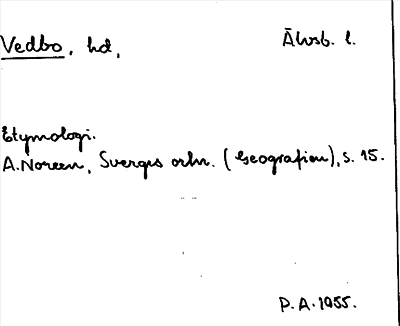 Vedbo, hd, Älvsb. l.
Etymologi.
A. Noreen, Sveriges ortn. (Geografien), s. 15.
P.A. 1955.